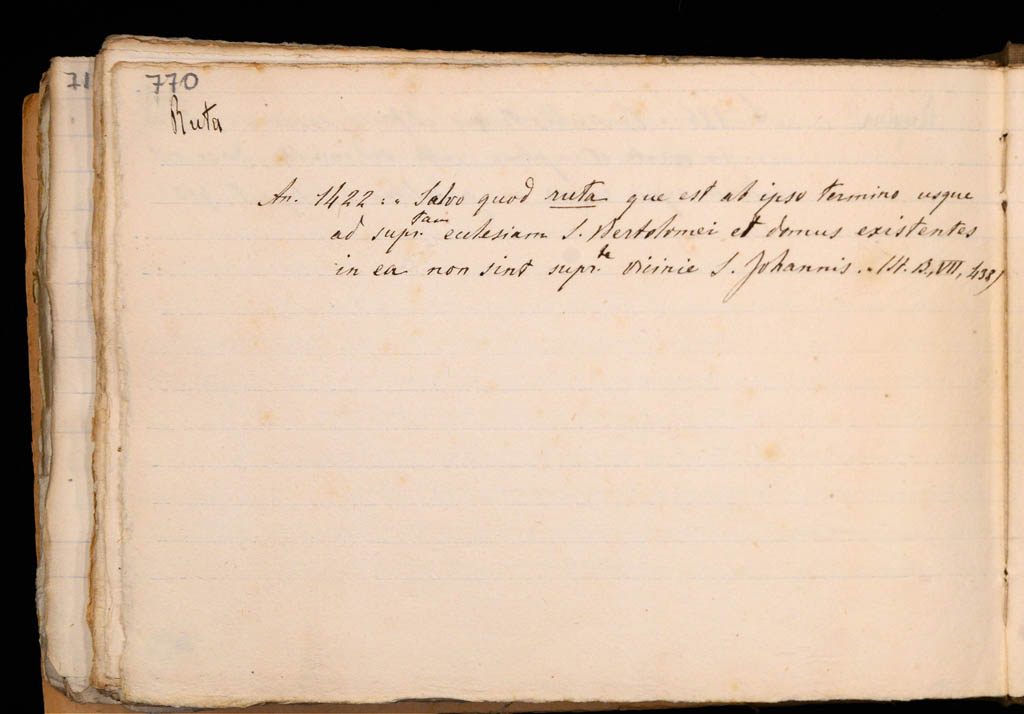 71
770
Ruta
An. 1422: „ Salvo quod ruta que est ab ipso termino usque
ad supr.tam ecclesiam S. Bertolomei et domus existentes
in ea non sint supr.te vicinie S. Johannis. „ St. B, VII, 438)